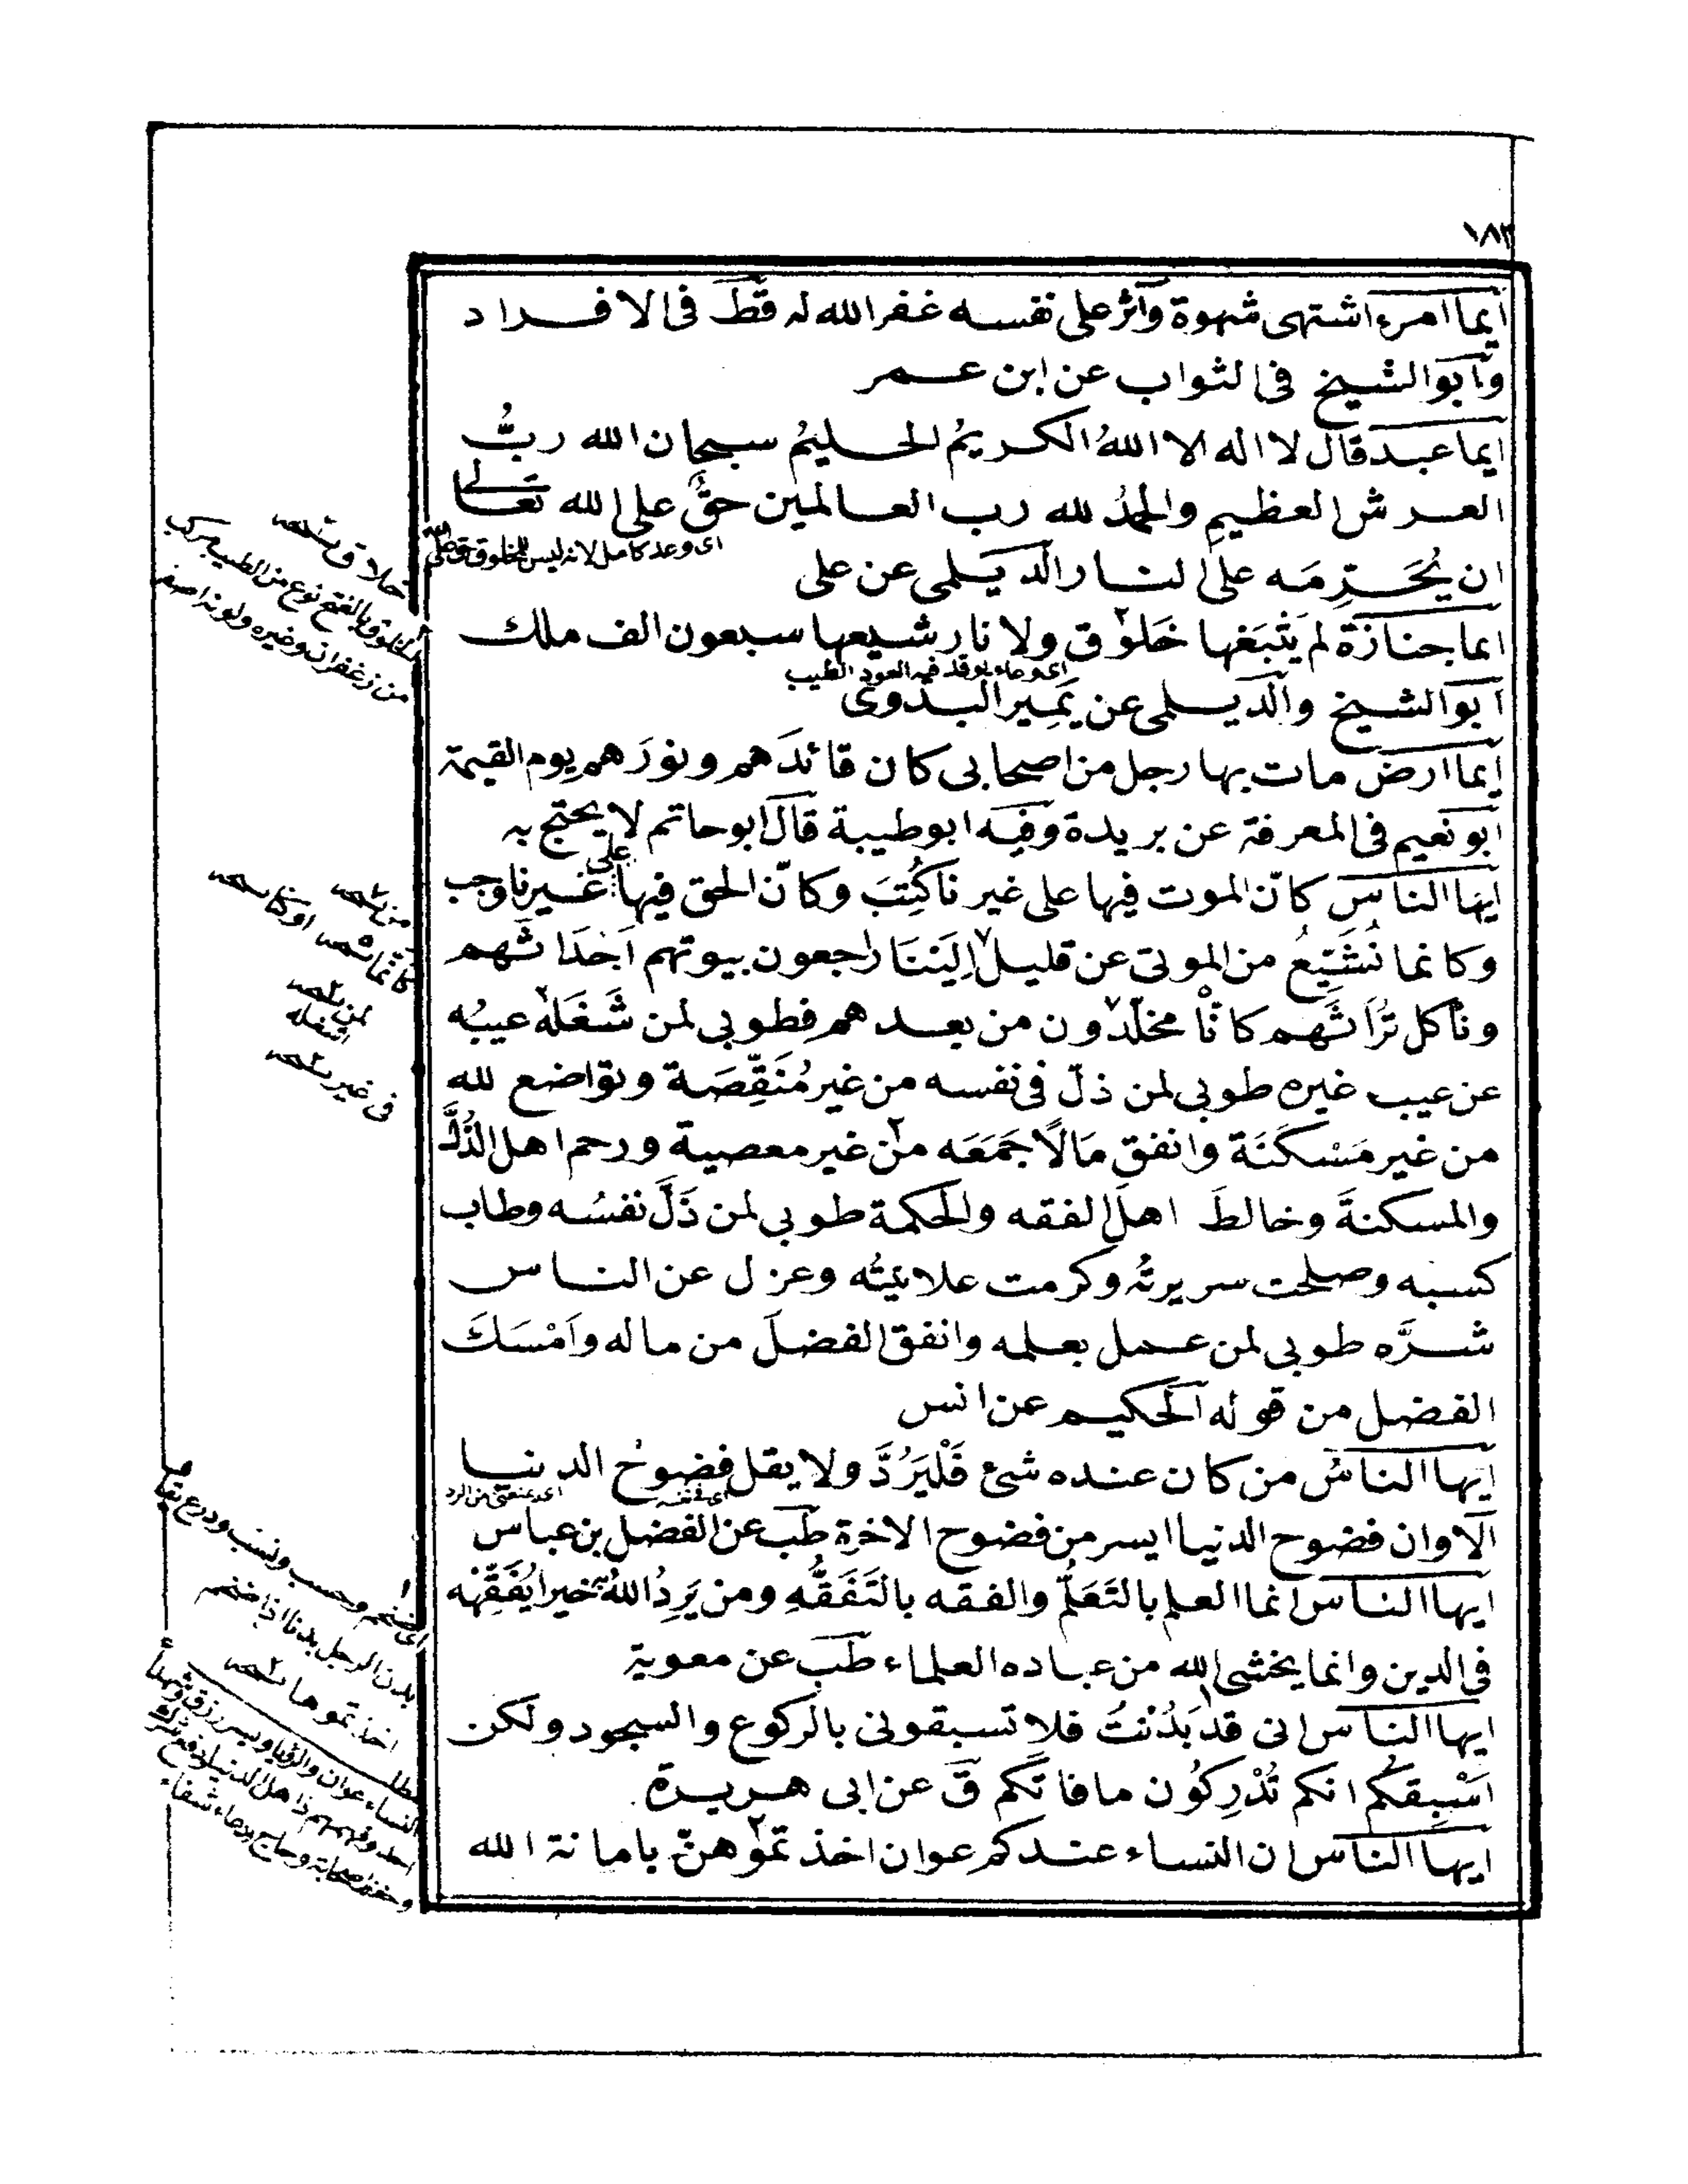 ١٨٣
ايما امرء اشتهى شهوة وآثر على نفسه غفر الله له قط فى الافراد
وابو الشيخ فى الثواب عن ابن عمر
ايما عبد قال لا اله الا اللهُ الكريمُ الحليمُ سبحان الله ربُّ
العرش العظيمِ والحمدُ لله رب العالمين حقٌّ على الله تعالى
اى وعد كامل لانه ليس للمخلوق حق على
ان يُحَرِّمَه على النار الديلمى عن على
ايما جنازة لم يَتْبَعْها خَلوق ولا نار شيعها سبعون الف ملك
اى وعاء يوقد فيه العود الطيب
ابو الشيخ والديلمى عن يَمِير البدوى
ايما ارض مات بها رجل من اصحابى كان قائدَهم ونورَهم يوم القيمة
ابو نعيم فى المعرفة عن بريدة وفيه ابو طيبة قال ابو حاتم لا يحتج به
ايها الناس كانّ الموت فيها على غيرنا كُتِبَ وكانّ الحق فيها على غيرنا وجب
وكانما نُشَيِّعُ من الموتى عن قليل اِلَيْنَا راجعون بيوتهم اَجْدَاثهم
ونأكل تُرَاثَهم كانّا مخلّدون من بعدهم فطوبى لمن شَغَلَه عيبُه
عن عيب غيره طوبى لمن ذلّ فى نفسه من غير مُنَقِّصَة وتواضع لله
من غير مَسْكَنَة وانفق مَالًا جَمَعَه من غير معصية ورحم اهل الذُّلّ
والمسكنةَ وخالطَ اهل الفقه والحكمة طوبى لمن ذَلَّ نفسُه وطاب
كسبه وصلحت سريرتُه وكرمت علانيتُه وعزل عن الناس
شرَّه طوبى لمن عمل بعلمه وانفق الفضلَ من ماله وَاَمْسَكَ
الفضل من قوله الحكيم عن انس
ايها الناسُ من كان عنده شئ فَلْيَرُدَّ ولا يقل فضوحُ الدنيا
الا وان فضوح الدنيا ايسر من فضوح الاخرة طب عن الفضل بن عباس
ايها الناس انما العلم بالتَعَلُّم والفقه بالتَفَقُّهِ ومن يَرِدُ اللهُ به خيرا يُفَقِّهْه
فى الدين وانما يخشى الله من عباده العلماء طب عن معوية
ايها الناس انى قد بَدُنْتُ فلا تسبقونى بالركوع والسجود ولكن
اَسْبِقكُم انكم تُدْرِكُون ما فاتكم ق عن ابى هريرة
ايها الناس ان النساء عندكم عوان اخذتموهنّ بامانة الله
خلاق نسخه
الخلوق بالفتح نوع من الطيب مركب
من زعفران وغيره ولونه اصفر
من نسخه
كانما نسخه اوكانا نسخه
لمن نسخه
اشغله
فى غير نسخه
بدن الرجل بدنا اذا ضخم
اخذتموها نسخه